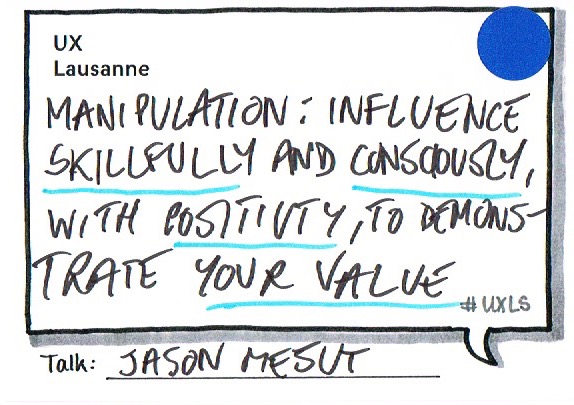 UX
Lausanne
MANIPULATION: INFLUENCE
SKILLFULLY AND CONSCIOUSLY,
WITH POSITIVTY, TO DEMONS-
TRATE YOUR VALUE
#UXLS
Talk: JASON MESUT